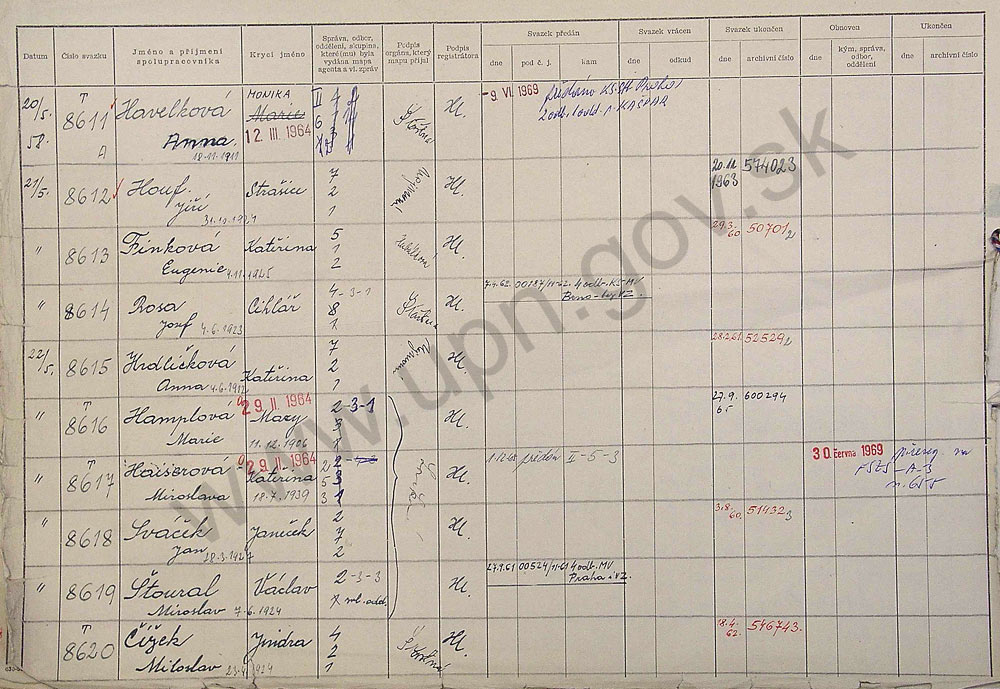 Datum
Číslo svazku
Jméno a příjmení
spolupracovníka
Krycí jméno
Správa, odbor,
oddělení, skupina,
které(mu) byla
vydána mapa
agenta a vl. zpráv
Podpis
orgána, který
mapu přijal
Podpis
registrátora
Svazek předán
dne
pod č. j.
kam
Svazek vrácen
dne
odkud
Svazek ukončen
dne
archivní číslo
Obnoven
dne
kým, správa,
odbor,
oddělení
Ukončen
dne
archivní číslo
20/5. T Havelková MONIKA II 4
58. 8611 Marie 6
A Anna. 12 III. 1964
18.11.1911
- 9. VI. 1969
předáno KS-SNB Praha
2 odb. 1 odd. A-KAŠPAR
21/5. 8612 Houf. Strašice 7 2 1 Hl.
Jiří
31.10.1927
20.12 574023
1963
" 8613 Finková Kateřina 5 1 2 Hl.
Eugenie 4.11.1925
29.3. 50701
60.
" 8614 Rosa Cihlář 4-3-1 8 1 Šťastná Hl.
Josef 4.6.1923
4 odb. KS-MV
Brno
22/5. 8615 Hrdličková Kateřina 7 2 1 Hl.
Anna 4.6.1912
28.2.61 52529
" T 8616 Hamplová 29. II. 1964 Mary 2-3-1 Hl.
Marie 11.12.1906
27.9. 600294
65
" T 8617 Haiserová 29. II 1964 Kateřina Hl.
Miroslava 18.7.1939
předán II-5-3
30. června 1969
přereg. na
A-3
" 8618 Sváček Janeček 2 7 2 Hl.
Jan 28.3.1927
3.8. 51432
60.
" 8619 Štoural Václav 2-3-3 Hl.
Miroslav 7.6.1924
27.9.61 00524/11-61 4 odb. MV
Praha
T 8620 Čížek Jindra 4 2 1 Šťastná Hl.
Miloslav
18.4. 546743.
62.
www.upn.gov.sk